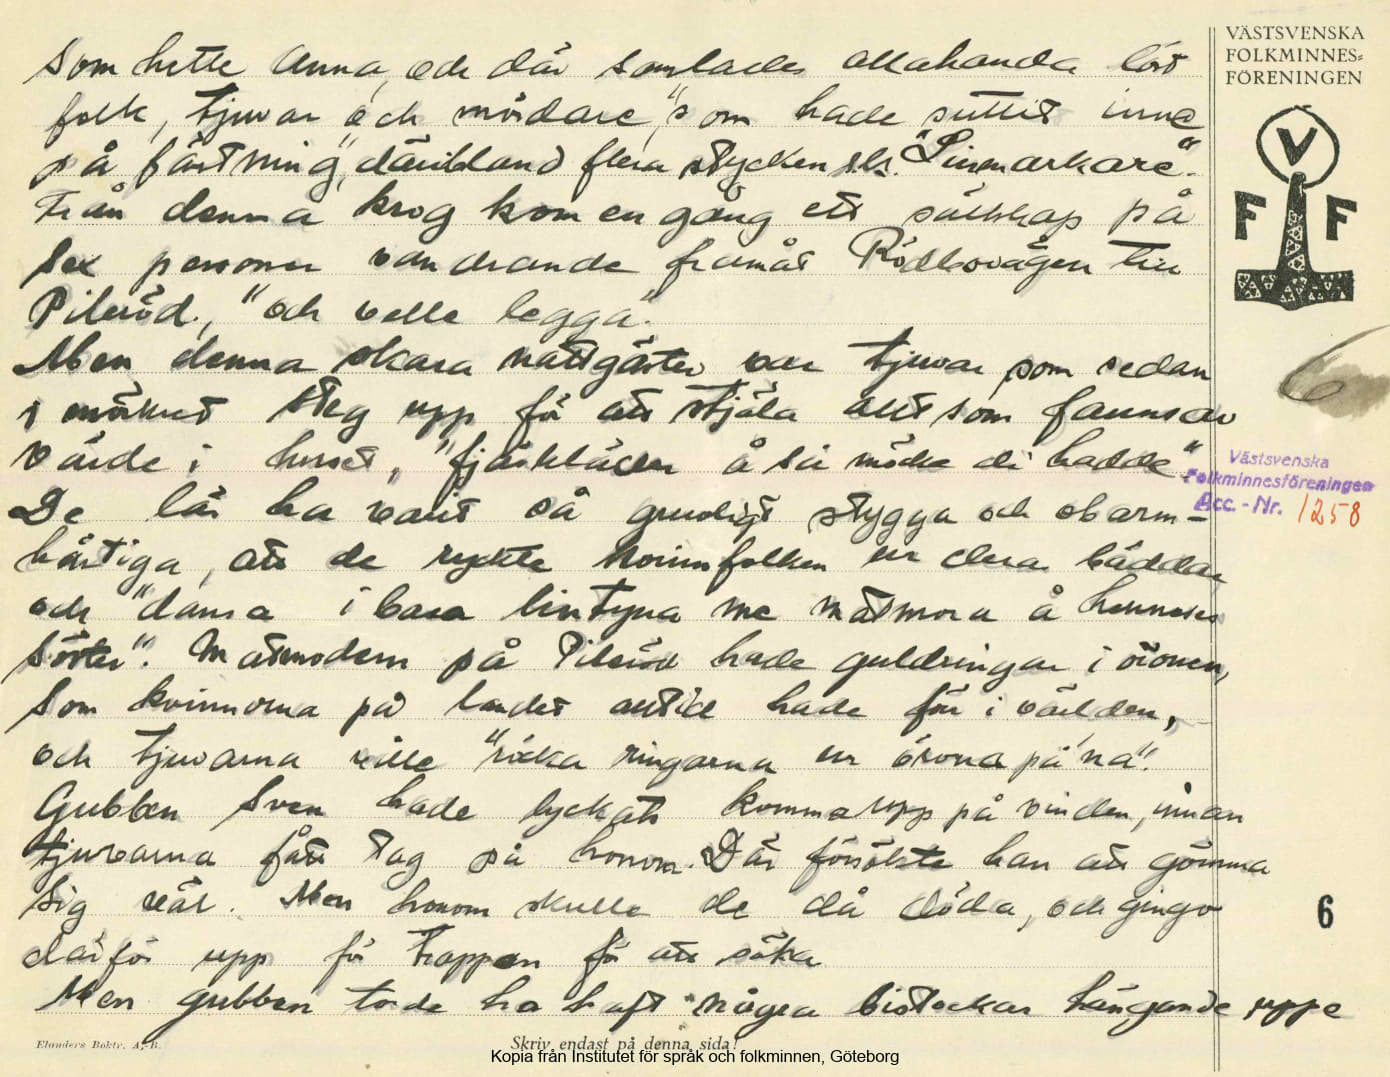 som hette Anna, och där samlades allahanda löst
folk, tjuvar och mördare, "som hade suttit inne
på fästning", däribland flera stycken s.k. "Linmarkare".
Från denna krog kom en gång ett sällskap på
sex personer vandrande framåt Rödbovägen till
Pileröd, "och velle legga".
Men denna skara nattgäster var tjuvar som sedan
i mörkret steg upp för att stjäla allt som fanns av
värde i huset, "fjäskläder å så möcke di hadde"
De lär ha varit så gruvligt stygga och obarm-
härtiga, att de ryckte kvinnfolken ur deras bäddar
och "dansa i bara lintyna me matmora å hennes
söster". Matmodern på Pileröd hade guldringar i öronen,
som kvinnorna på landet alltid hade för i världen,
och tjuvarna ville "röcka ringarna ur örona på 'na".
Gubben Sven hade lyckats komma upp på vinden, innan
tjuvarna fått tag på honom. Där försökte han att gömma
sig väl. Men honom skulle de då döda, och gingo
därför upp för trappan för att söka
Men gubben torde ha haft några bistockar hängande uppe
VÄSTSVENSKA
FOLKMINNES=
FÖRENINGEN
V
F F
6
Västsvenska
Folkminnesföreningen
Acc.-Nr. 1258
6
Elanders Boktr. A.-B.
Skriv endast på denna sida!
Kopia från Institutet för språk och folkminnen, Göteborg